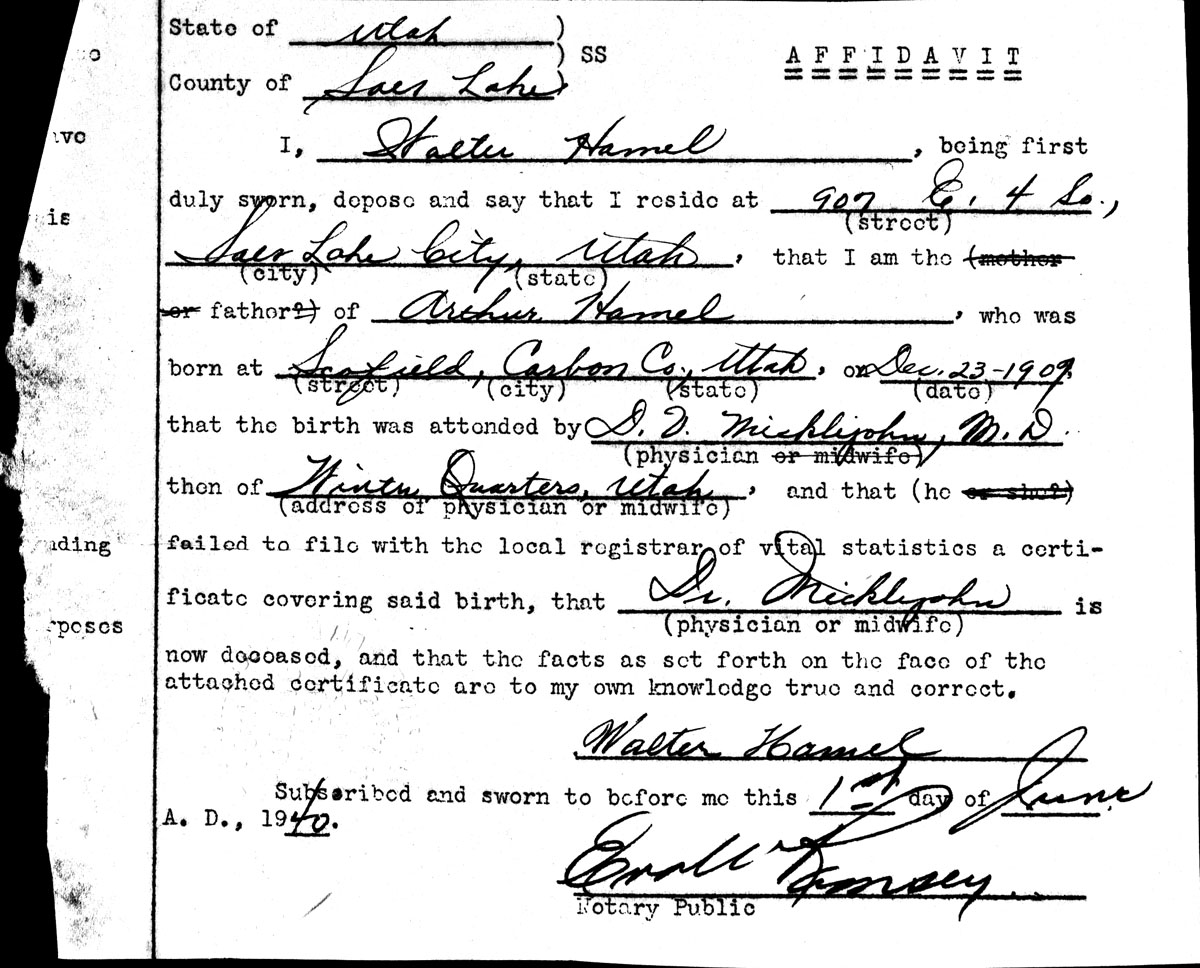 State of Utah )
) SS
AFFIDAVIT
County of Salt Lake )
I, Walter Hamel, being first
duly sworn, depose and say that I reside at 907 E. 4 So.,
(street)
Salt Lake City, Utah, that I am the (mother
(city) (state)
or father?) of Arthur Hamel, who was
born at Scofield, Carbon Co., Utah, on Dec. 23-1909.
(street) (city) (state) (date)
that the birth was attended by D. V. Micklijohn, M.D.
(physician or midwife)
then of Winter Quarters, Utah, and that (he or she?)
(address of physician or midwife)
failed to file with the local registrar of vital statistics a certi-
ficate covering said birth, that Dr. Micklijohn is
(physician or midwife)
now deceased, and that the facts as set forth on the face of the
attached certificate are to my own knowledge true and correct.
Walter Hamel
Subscribed and sworn to before me this 1st day of June
A. D., 1940.
Ramsey
Notary Public
is
nding
rposes